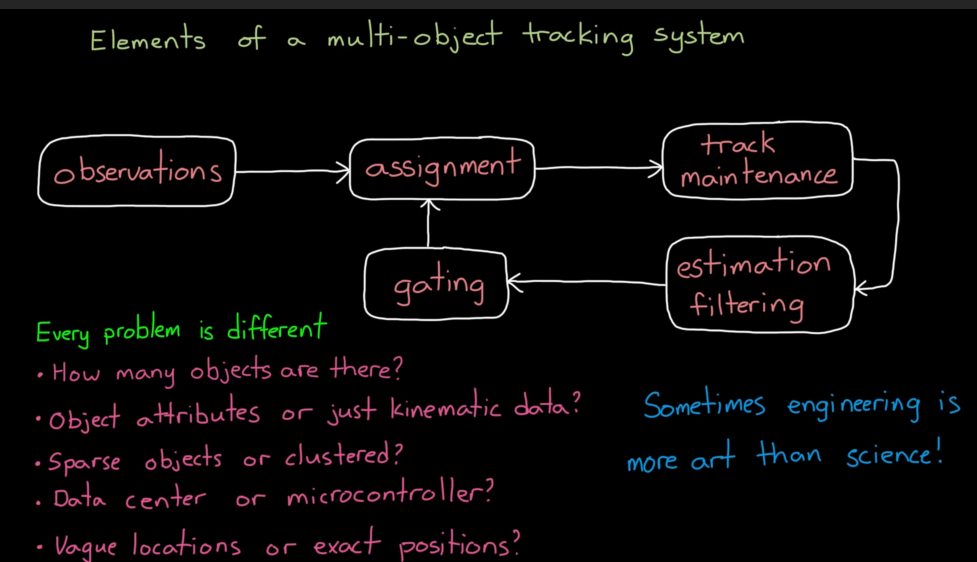 Elements of a multi-object tracking system
observations
assignment
track
maintenance
gating
estimation
filtering
Every problem is different
• How many objects are there?
• Object attributes or just kinematic data?
• Sparse objects or clustered?
• Data center or microcontroller?
• Vague locations or exact positions?
Sometimes engineering is
more art than science!